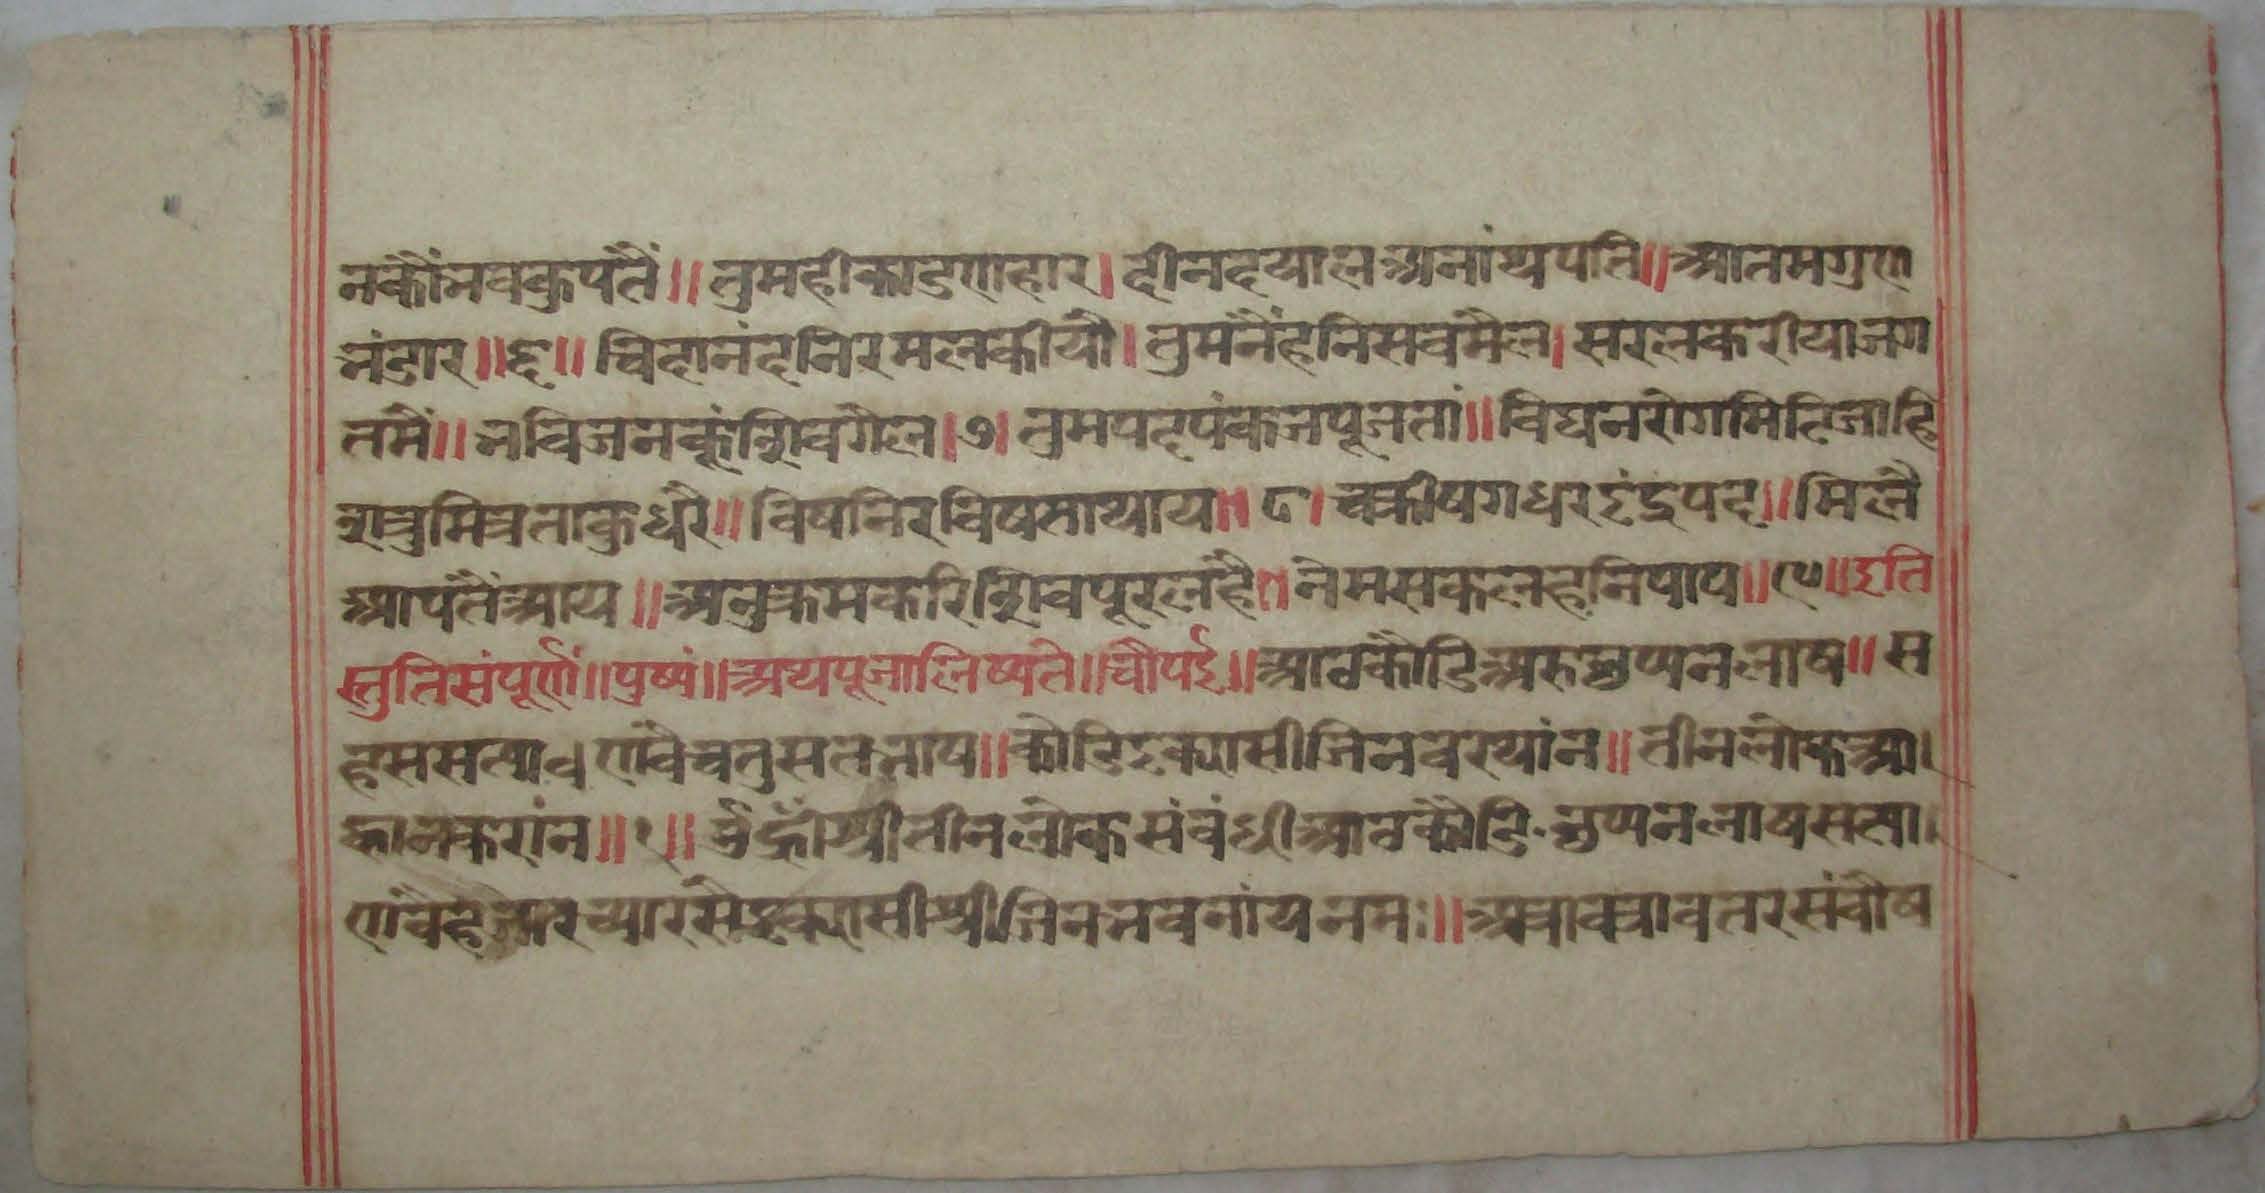 नकौंभवकुपतैं॥ तुमहीकाडणहार। दीनदयालअनांथपति॥ आतमगुण
भंडार॥६॥ चिदानंदनिरमलकीयौ। तुमनैंहनिसवमैल। सरलकरीयाजग
तमैं॥ भविजनकूंशिवगैल।७। तुमपदपंकजपूजतां॥ विघनरोगमिटिजाहि
शत्रुमित्रताकुधरै॥ विषनिरविषताथाय॥८। चक्रीषगधरइंद्रपद॥ मिलै
आपतैंआय॥ अनुक्रमकरिशिवपूरलहै॥ नेमसकलहनिपाप॥९॥ इति
स्तुतिसंपूर्णं॥ पुष्पं॥ अथपूजालिष्यते॥ चौपई॥ आठकोडिअरुछप्पनलाष॥ स
हससत्याव णवैचतुसतभाष॥ कोडिइक्यासीजिनवरथांन॥ तीनलोकआ।
ह्वानकरांन॥१॥ र्उंह्रींश्रीतीनलोकसंवंधीआठकोडि छप्पनलाषसत्या।
णंवैहजारच्यारसैइक्यासीश्रीजिनभवनांयनमः॥ अत्रावत्रावतरसंवौष